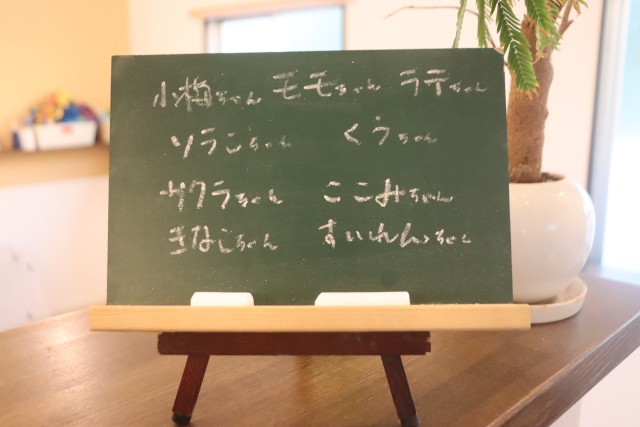 小梅ちゃん モモちゃん ラテちゃん
ソラこちゃん くうちゃん
サクラちゃん ここみちゃん
きなこちゃん すいれんちゃん